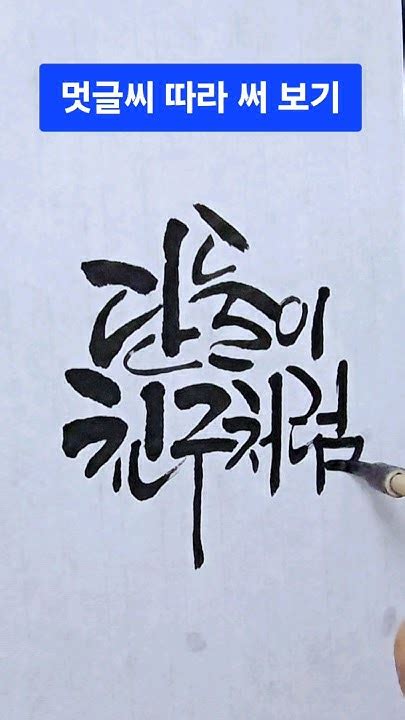 멋글씨 따라 써 보기
단둘이
친구처럼